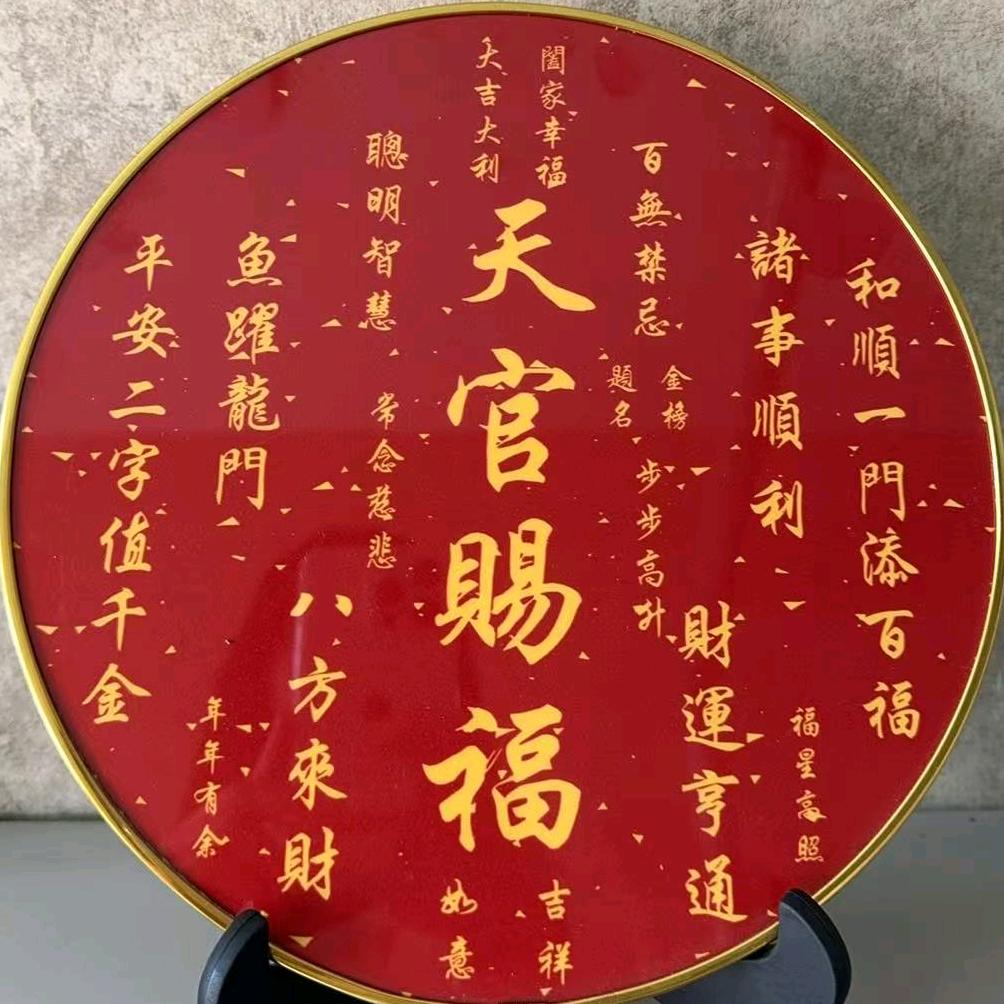 和順一門添百福
諸事順利
福星高照
財運亨通
百無禁忌
金榜
題名
步步高升
闔家幸福
大吉大利
天官賜福
吉祥
如意
聰明智慧
常念慈悲
八方來財
魚躍龍門
年年有余
平安二字值千金